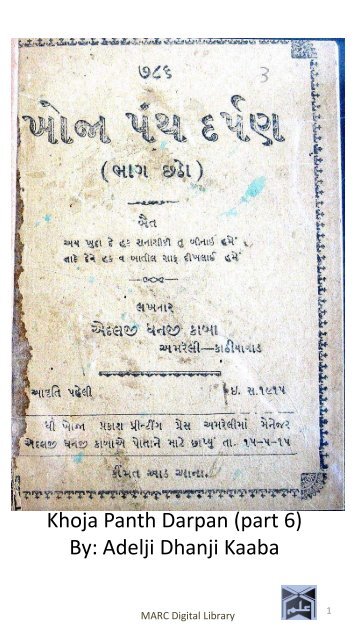 ૭૮૬
3
ખોજા પંથ દર્પણ
(ભાગ છઠો)
બૈત
અય ખુદા દે હક
તાકે દેને હક વ બાતીલ સાફ દીખલાઈ હમેં
લખનાર
એદલજી ધનજી કાબા
અમરેલી—કાઠીયાવાડ
આવૃતિ પહેલી ઈ. સ. ૧૯૧૫
ધી ખોજા પ્રકાશ પ્રીન્ટીંગ પ્રેસ અમરેલીમાં મેનેજર
એદલજી ધનજી કાબાએ પોતાને માટે છાપ્યું તા. ૧૫-૫-૧૫
કીંમત આઠ આના.
Khoja Panth Darpan (part 6)
By: Adelji Dhanji Kaaba
MARC Digital Library
علم
1